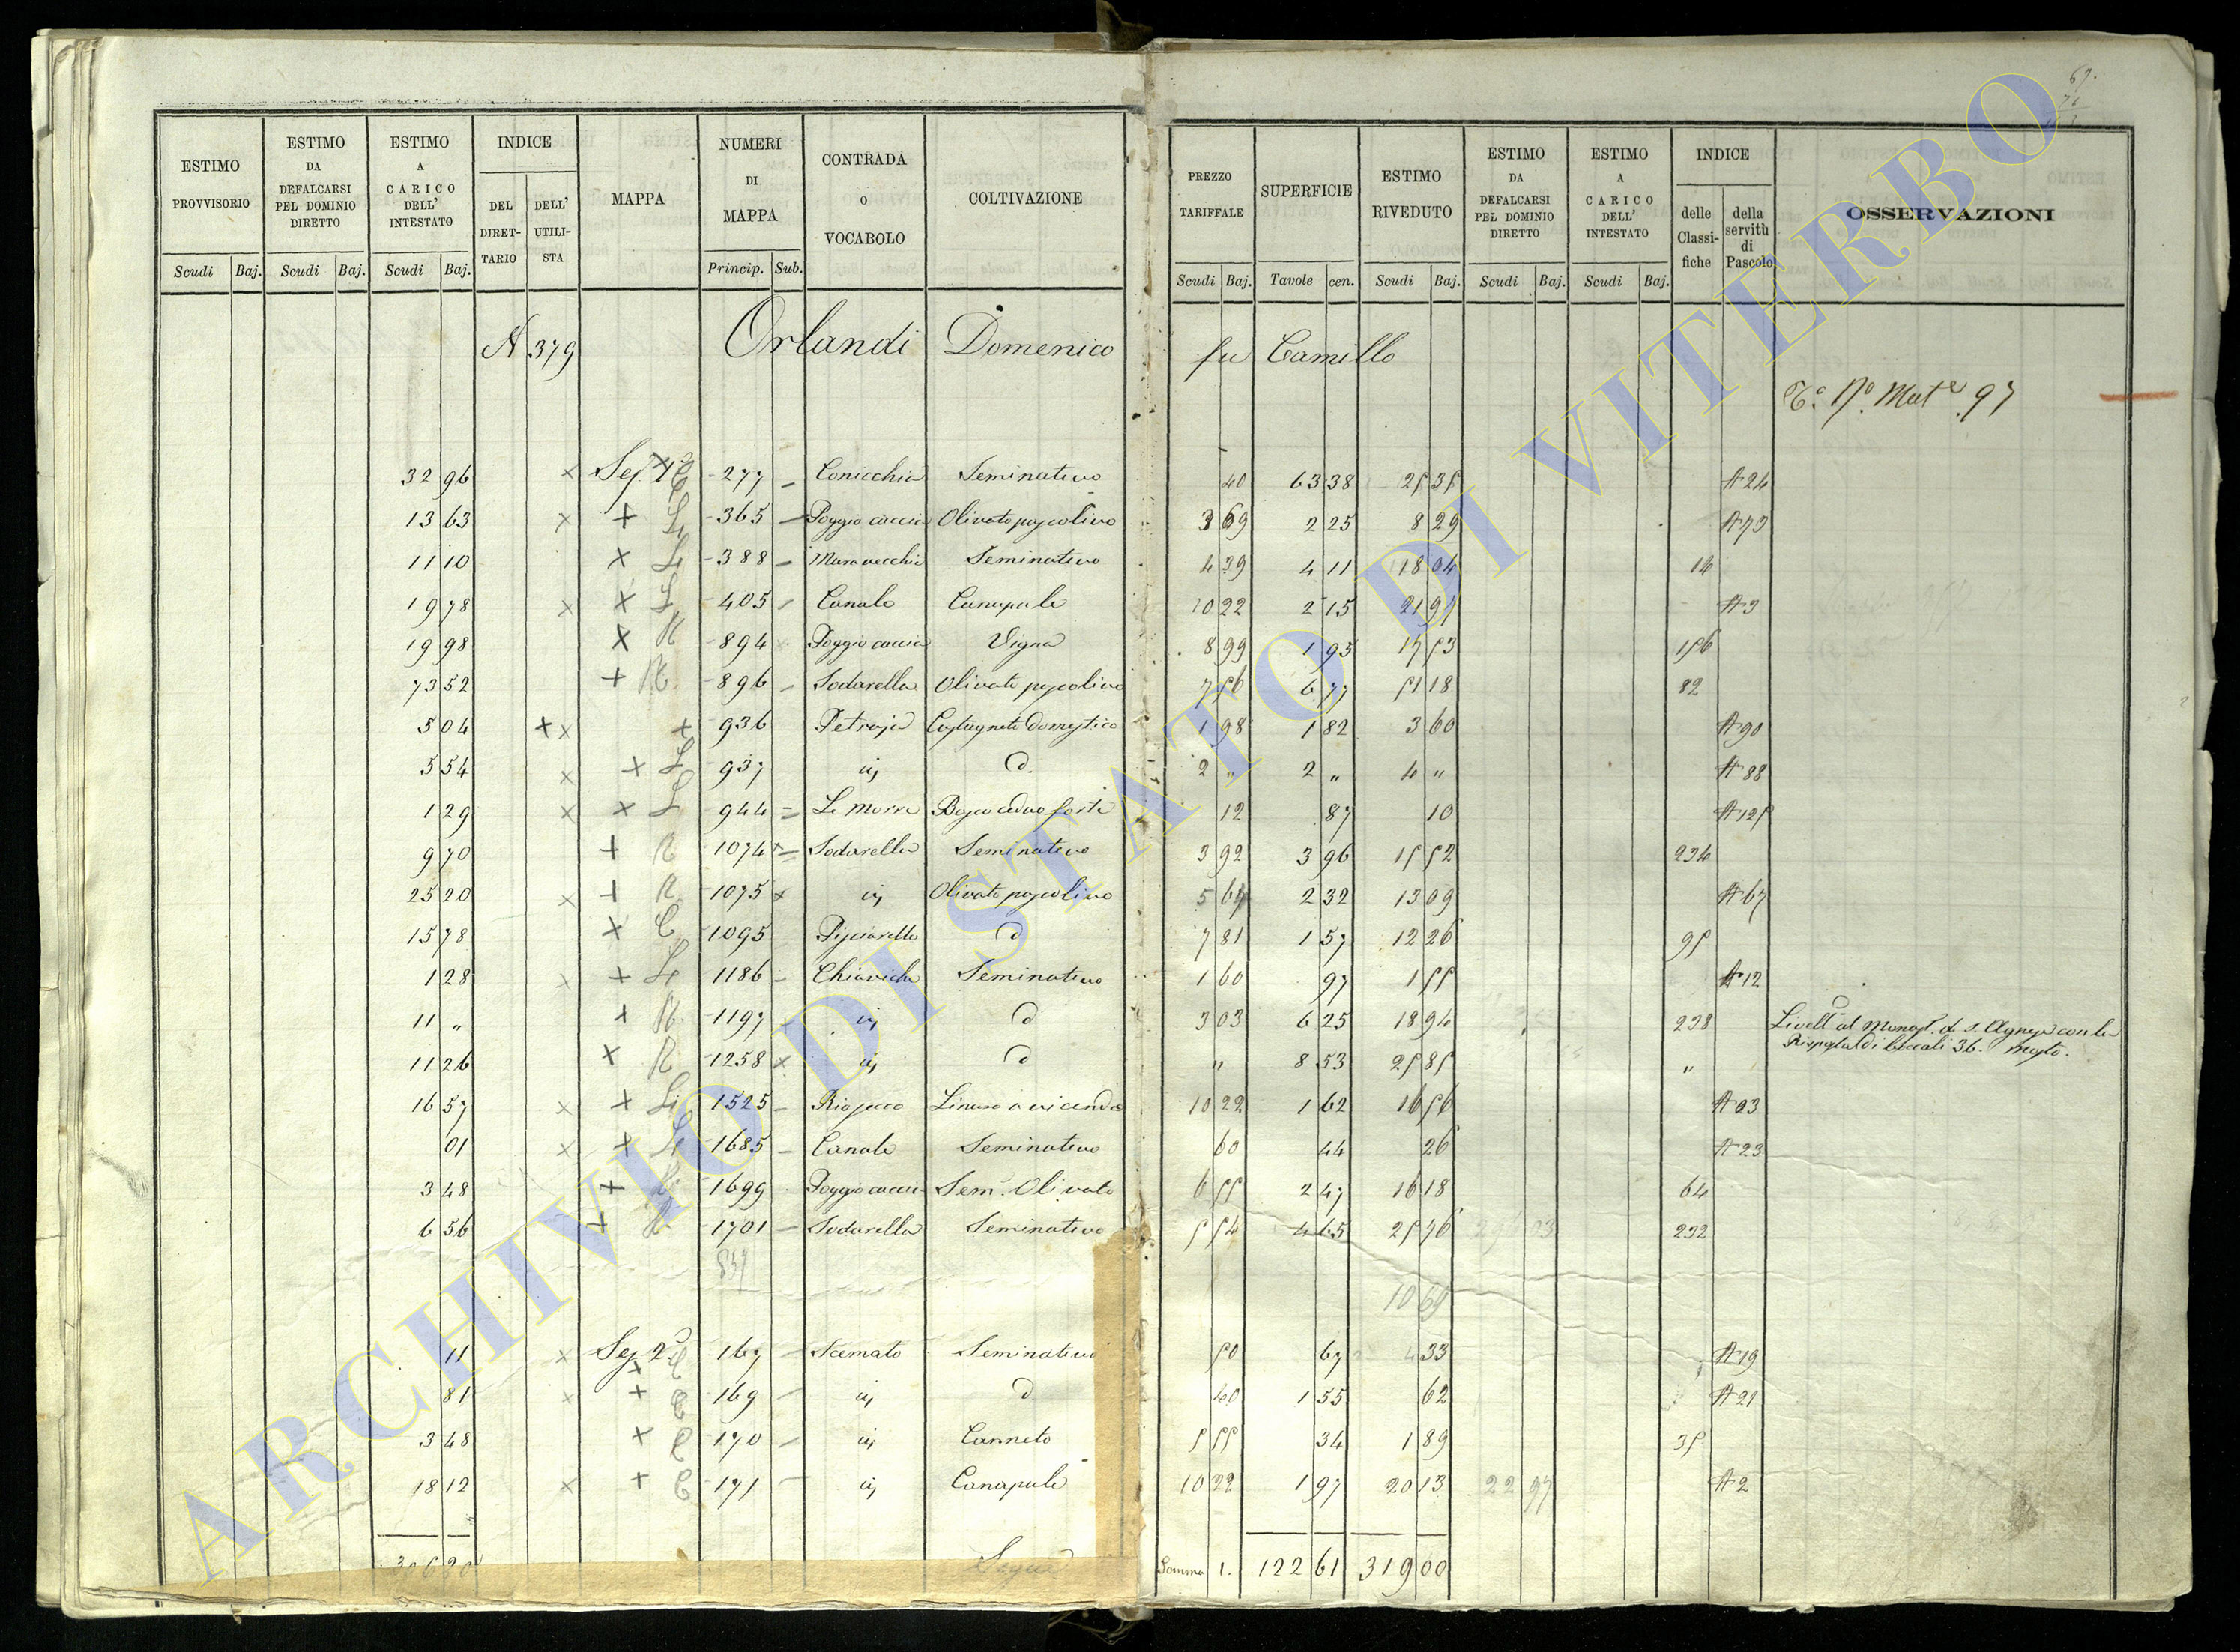 69.
70
ESTIMO PROVVISORIO | ESTIMO DA DEFALCARSI PEL DOMINIO DIRETTO | ESTIMO A CARICO DELL' INTESTATO | INDICE DEL DIRET-TARIO | DELL' UTILI-STA | MAPPA | NUMERI DI MAPPA | CONTRADA O VOCABOLO | COLTIVAZIONE | PREZZO TARIFFALE | SUPERFICIE | ESTIMO RIVEDUTO | ESTIMO DA DEFALCARSI PEL DOMINIO DIRETTO | ESTIMO A CARICO DELL' INTESTATO | INDICE delle Classi-fiche | della servitù di Pascolo | OSSERVAZIONI
Scudi Baj. | Scudi Baj. | Scudi Baj. | Princip. Sub. | Scudi Baj. | Tavole cen. | Scudi Baj. | Scudi Baj. | Scudi Baj.
N 379 Orlandi Domenico fu Camillo
97
32 96 x Sez 1ª C 277 Conicchia Seminativo 40 63 38 25 35 A 24
13 63 x + L 365 Poggio caccia Olivato pascolivo 3 69 2 25 8 29 A 73
11 10 x L 388 Muravecchia Seminativo 4 39 4 11 18 04 14
19 78 x x L 405 Canale Canapule 10 22 2 15 21 97 A 3
19 98 x R 894 Poggio caccia Vigna 8 99 1 95 17 53 156
73 52 + R. 896 Sodarella Olivato pascolivo 7 56 6 77 51 18 82
5 04 + x + 936 Petraja Castagneto domestico 1 98 1 82 3 60 A 90
5 54 x x L 937 iη d. 2 " 2 " 4 " A 88
1 29 x x L 944 Le Morre Bosco ceduo forte 12 87 10 A 125
9 70 + R 1074 Sodarella Seminativo 3 92 3 96 15 52 234
25 20 x + R 1075 x iη Olivato pascolivo 5 64 2 32 13 09 A 67
15 78 x C 1095 Pisciarello d 7 81 1 57 12 26 95
1 28 x + L 1186 Chiaviche Seminativo 1 60 97 1 55 A 12
11 " x R. 1197 iη d 3 03 6 25 18 94 238 Livell. al Monast. di S. Agnese con la
Risposta di boccali 36. mosto.
11 26 x R 1258 x iη d " 8 53 25 85 "
16 57 x + L 1525 Riosecco Linaro a vicenda 10 22 1 62 16 56 A 03
01 x + L 1685 Canale Seminativo 60 44 26 A 23
3 48 + 1699 Poggio caccia Sem. Olivato 6 55 2 47 16 18 64
6 56 + R. 1701 Sodarella Seminativo 5 54 4 65 25 76 232
10 69
11 x Sez 2ª C 167 Scemato Seminativo 50 67 33 A 19
81 x + C 169 iη d 40 1 55 62 A 21
3 48 x C 170 iη Canneto 5 55 34 1 89 35
18 12 x + C 171 iη Canapule 10 22 1 97 20 13 22 97 A 2
306 20 Segue Somma 1. 122 61 319 00
ARCHIVIO DI STATO DI VITERBO